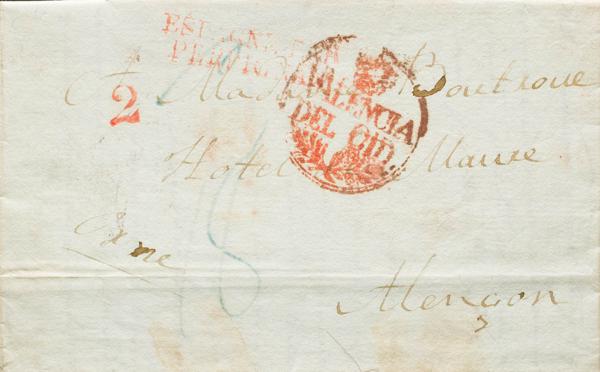 ESPAGNE PAR
PERPIGNAN
VALENCIA
DEL CID.
2
A Madame Boutroue
Hotel Mause
Orne
Alençon